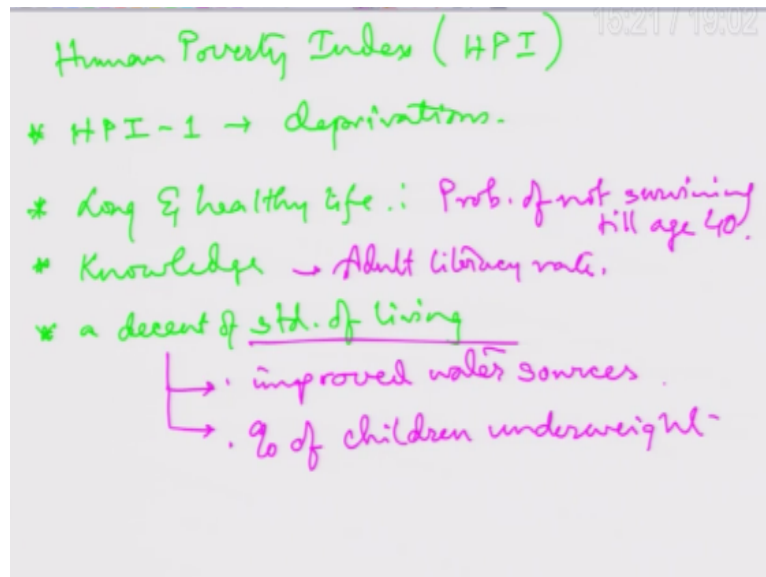 15:21 / 19:02
Human Poverty Index (HPI)
* HPI-1 → deprivations.
* Long & healthy life : Prob. of not surviving
till age 40.
* Knowledge → Adult literacy rate.
* a decent of std. of living
→ . improved water sources.
→ . % of children underweight